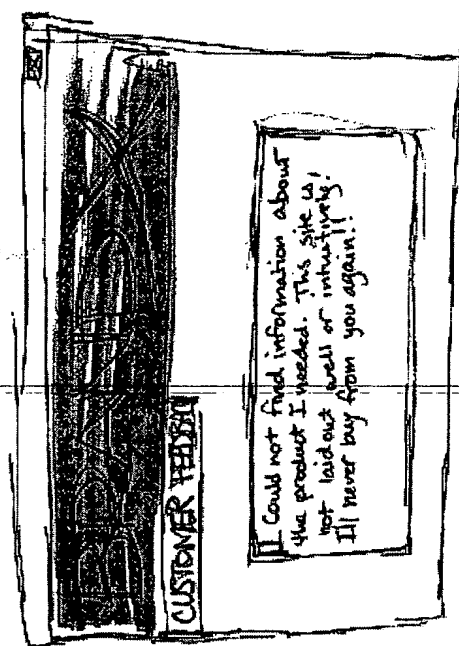 CUSTOMER FEEDBACK
I Could not find information about
the product I needed. This site is
not laid out well or intuitively!
I'll never buy from you again!!